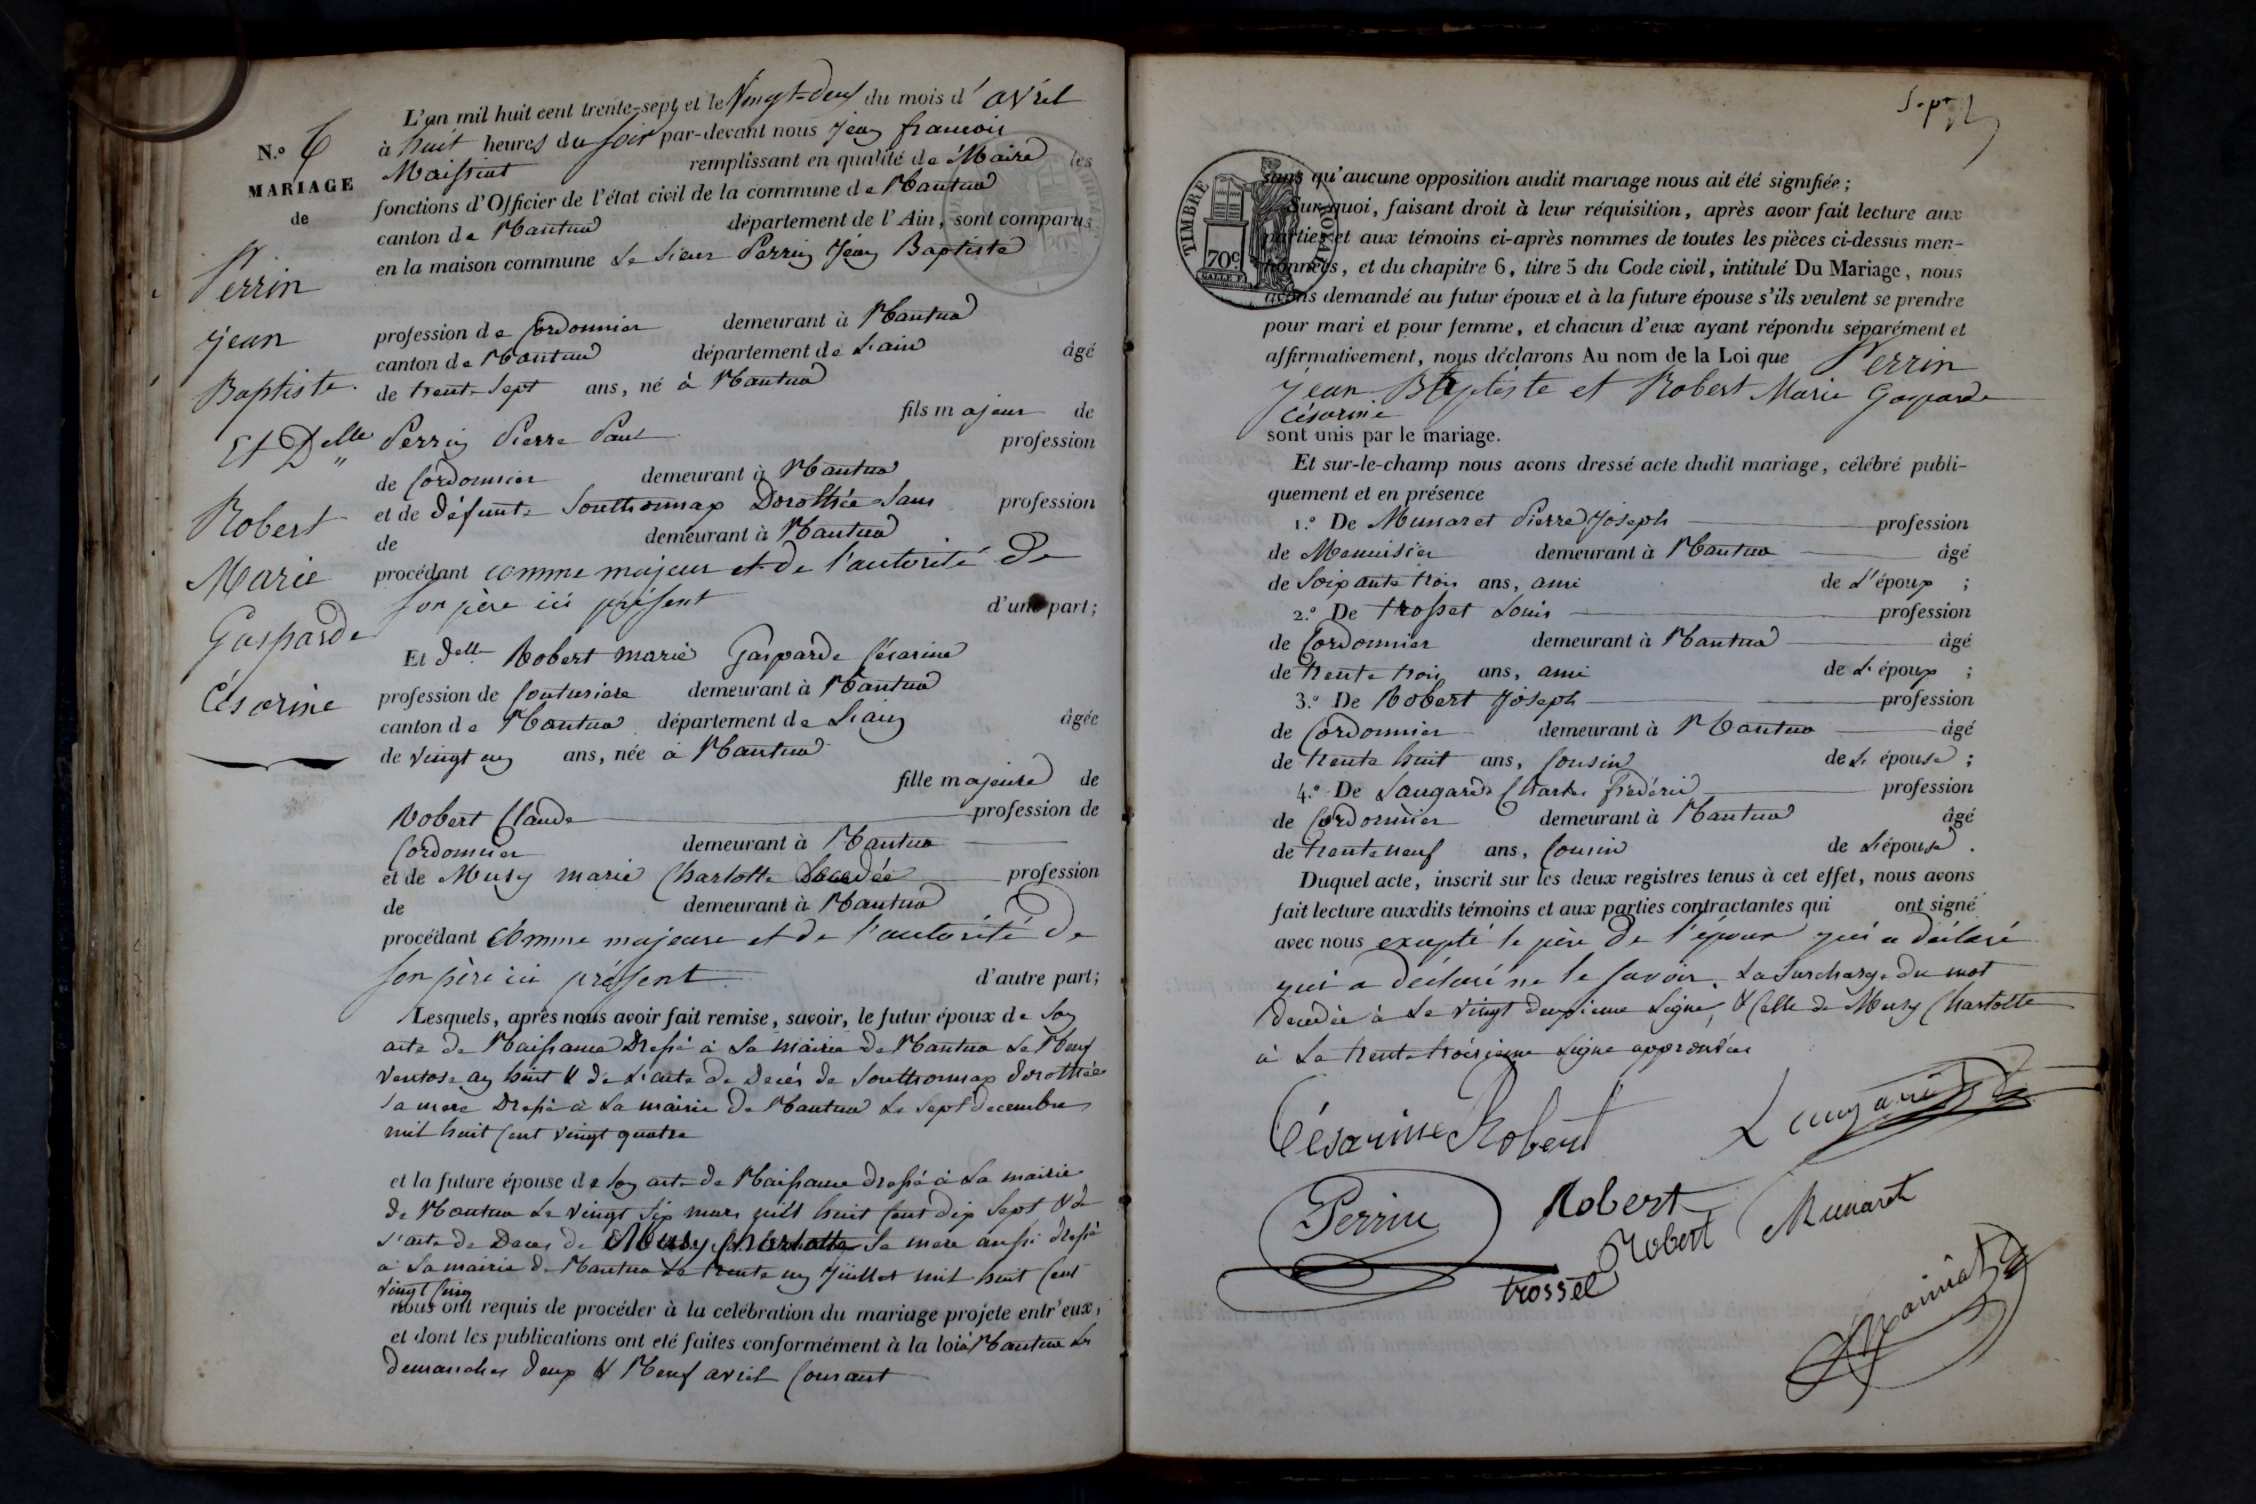 N.o 6
MARIAGE
de
Perrin
jean
Baptiste.
Et Delle
Robert
Marie
Gasparde
Césarine
L'an mil huit cent trente-sept et le Vingt-deux du mois d'avril
à huit heures du soir par-devant nous jean francois
Maissiat remplissant en qualité de Maire les
fonctions d'Officier de l'état civil de la commune de Nantua
canton de Nantua département de l'Ain, sont comparus
en la maison commune Le Sieur Perrin Jean Baptiste
profession de Cordonnier demeurant à Nantua
canton de Nantua département de L'ain âgé
de trente Sept ans, né à Nantua
fils majeur de
Perrin Pierre Paul profession
de Cordonnier demeurant à Nantua
et de défunte Southonnax Dorothée Sans profession
de demeurant à Nantua
procédant comme majeur et de l'autorité de
son père ici présent d'une part;
Et delle Robert marie Gasparde Césarine
profession de Couturiere demeurant à Nantua
canton de Nantua département de L'ain âgée
de vingt un ans, née à Nantua
fille majeure de
Robert Claude profession de
Cordonnier demeurant à Nantua
et de Musy marie Charlotte Decedée profession
de demeurant à Nantua
procédant Comme majeure et de l'autorité de
son père ici présent d'autre part;
Lesquels, après nous avoir fait remise, savoir, le futur époux de Son
acte de Naissance Dressé à La mairie de Nantua Le Neuf
Ventose an huit & de L'acte de Decés de Southonnax dorothée
Sa mere Dressé à La mairie de Nantua Le Sept decembre
mil huit Cent vingt quatre
et la future épouse de Son acte de Naissance dressé à La mairie
de Nantua Le vingt Six mars mil huit Cent dix Sept & de
L'acte de Deces de Musy Charlotte Sa mere aussi dressé
à La mairie de Nantua Le trente un Juillet mil huit Cent
vingt Cinq
nous ont requis de procéder à la celébration du mariage projete entr'eux,
et dont les publications ont eté faites conformément à la loi à Nantua Les
dimanches deux & Neuf avril Courant
Sept
TIMBRE ROYAL
70c
sans qu'aucune opposition audit mariage nous ait été signifiée;
Sur quoi, faisant droit à leur réquisition, après avoir fait lecture aux
parties et aux témoins ci-après nommes de toutes les pièces ci-dessus men-
tionnées, et du chapitre 6, titre 5 du Code civil, intitulé Du Mariage, nous
avons demandé au futur époux et à la future épouse s'ils veulent se prendre
pour mari et pour femme, et chacun d'eux ayant répondu séparément et
affirmativement, nous déclarons Au nom de la Loi que Perrin
jean Baptiste et Robert Marie Gasparde
Césarine
sont unis par le mariage.
Et sur-le-champ nous avons dressé acte dudit mariage, célébré publi-
quement et en présence
1.o De Munaret Pierre Joseph profession
de Menuisier demeurant à Nantua âgé
de Soixante trois ans, ami de L'époux ;
2.o De trosset Louis profession
de Cordonnier demeurant à Nantua âgé
de trente trois ans, ami de L'époux ;
3.o De Robert Joseph profession
de Cordonnier demeurant à Nantua âgé
de trente huit ans, Cousin de L'épouse ;
4.o De Laugarde Charles Frédéric profession
de Cordonnier demeurant à Nantua âgé
de trente neuf ans, Cousin de L'épouse .
Duquel acte, inscrit sur les deux registres tenus à cet effet, nous avons
fait lecture auxdits témoins et aux parties contractantes qui ont signé
avec nous excepté le père de l'époux qui a déclaré
qui a déclaré ne le savoir. La Surcharge du mot
decedée à La vingt deuxieme Ligne, & Celle de Musy Charlotte
à La trente troisieme Ligne approuvées
Césarine Robert
Perrin
Robert
Munaret
Robert
trosset